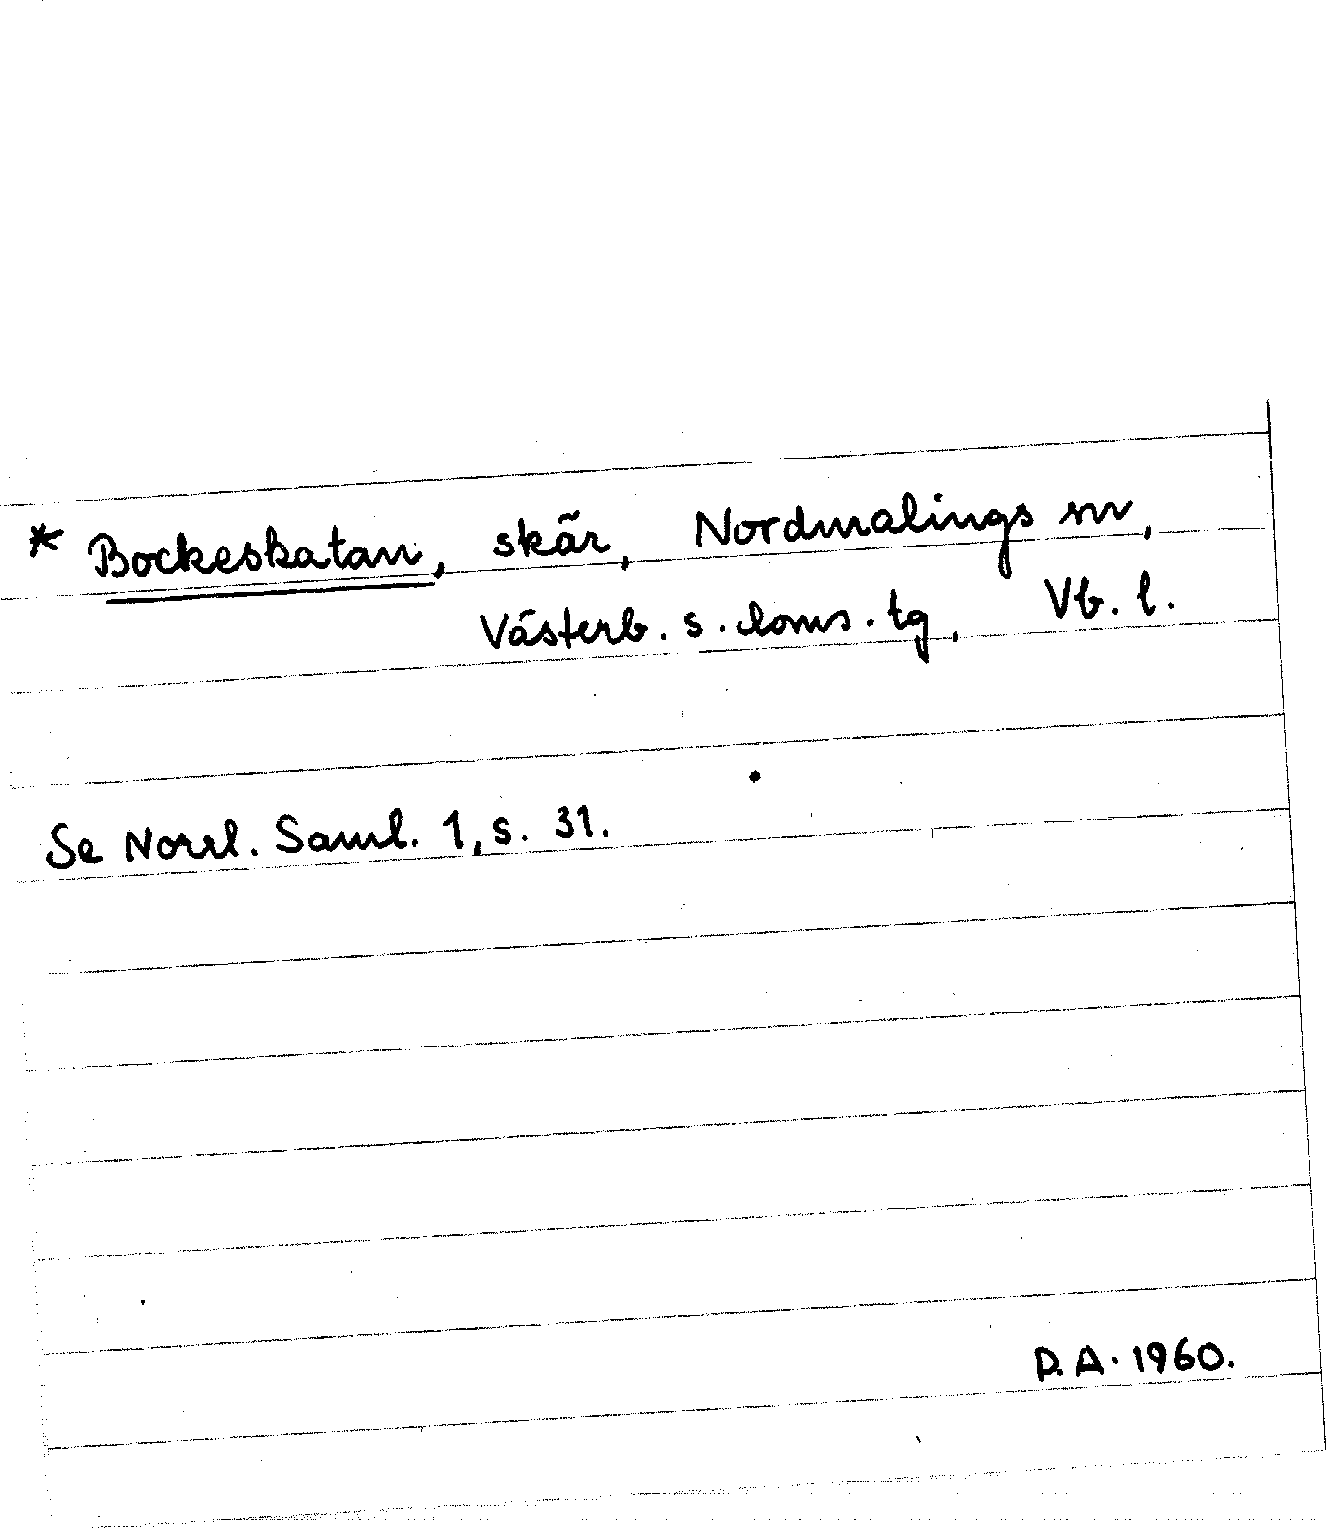 * Bockeskatan, skär, Nordmalings sn,
Västerb. s. doms. tg, Vb. l.
Se Norrl. Saml. 1, s. 31.
D. A. 1960.